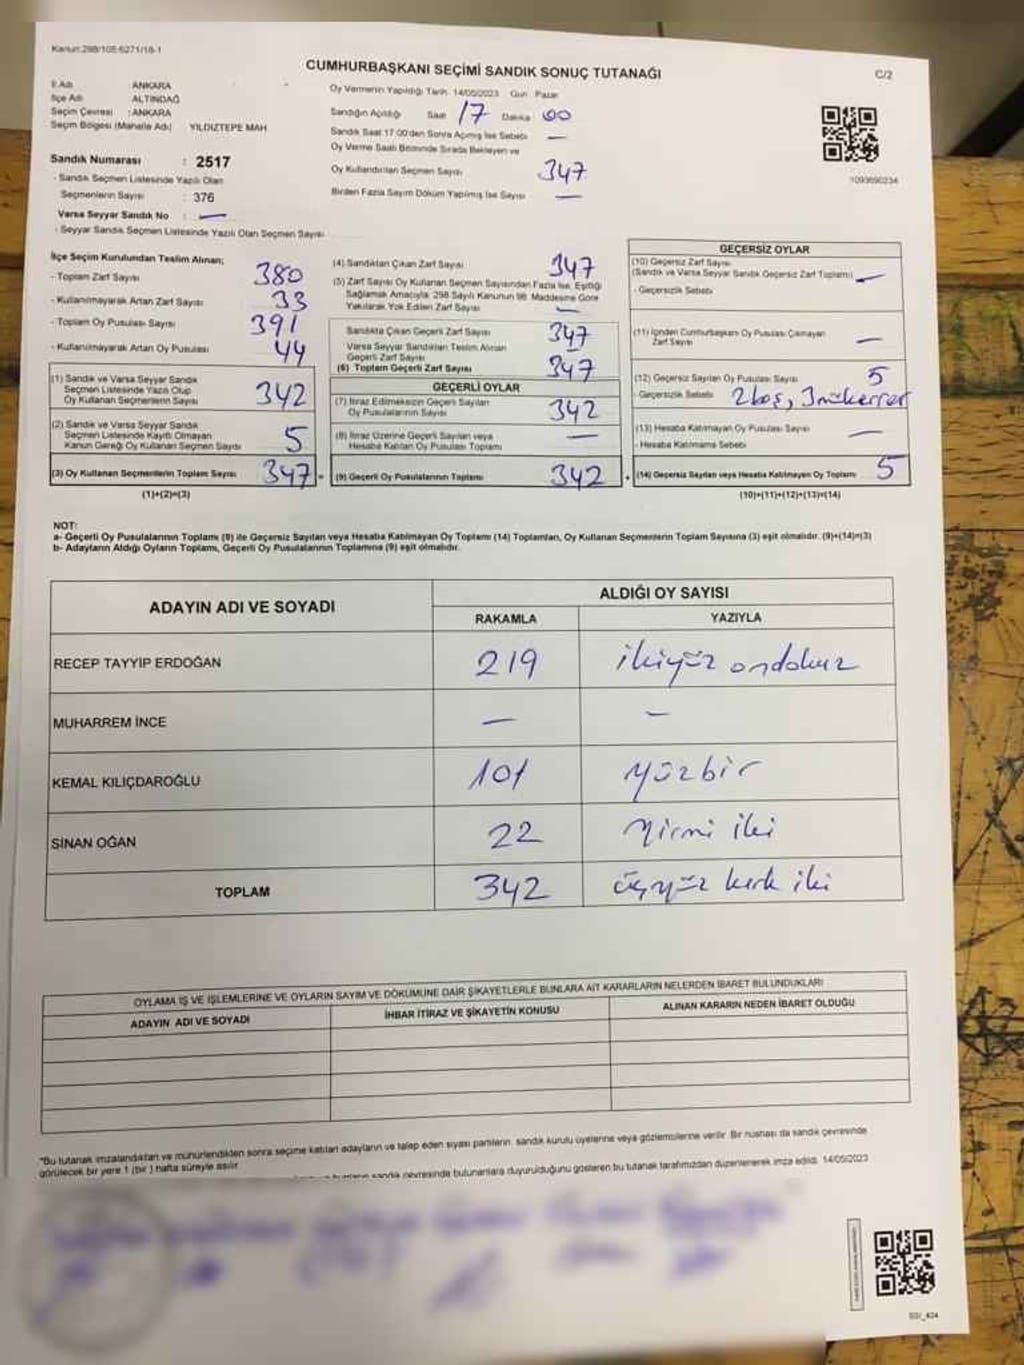 Kanun:298/105;6271/18-1
CUMHURBAŞKANI SEÇİMİ SANDIK SONUÇ TUTANAĞI
C/2
İl Adı : ANKARA
İlçe Adı : ALTINDAĞ
Seçim Çevresi : ANKARA
Seçim Bölgesi (Mahalle Adı) YILDIZTEPE MAH
Sandık Numarası : 2517
- Sandık Seçmen Listesinde Yazılı Olan
Seçmenlerin Sayısı : 376
Varsa Seyyar Sandık No : —
- Seyyar Sandık Seçmen Listesinde Yazılı Olan Seçmen Sayısı
Oy Vermenin Yapıldığı Tarih: 14/05/2023 Gün: Pazar
Sandığın Açıldığı Saat 17 Dakika 00
Sandık Saat 17:00'den Sonra Açılmış İse Sebebi —
Oy Verme Saati Bitiminde Sırada Bekleyen ve
Oy Kullandırılan Seçmen Sayısı 347
Birden Fazla Sayım Döküm Yapılmış İse Sayısı —
1093690234
İlçe Seçim Kurulundan Teslim Alınan;
- Toplam Zarf Sayısı 380
- Kullanılmayarak Artan Zarf Sayısı 33
- Toplam Oy Pusulası Sayısı 391
- Kullanılmayarak Artan Oy Pusulası 44
(1) Sandık ve Varsa Seyyar Sandık
Seçmen Listesinde Yazılı Olup
Oy Kullanan Seçmenlerin Sayısı 342
(2) Sandık ve Varsa Seyyar Sandık
Seçmen Listesinde Kayıtlı Olmayan
Kanun Gereği Oy Kullanan Seçmen Sayısı 5
(3) Oy Kullanan Seçmenlerin Toplam Sayısı 347 =
(1)+(2)=(3)
(4) Sandıktan Çıkan Zarf Sayısı 347
(5) Zarf Sayısı Oy Kullanan Seçmen Sayısından Fazla İse, Eşitliği
Sağlamak Amacıyla; 298 Sayılı Kanunun 98. Maddesine Göre
Yakılarak Yok Edilen Zarf Sayısı —
Sandıkta Çıkan Geçerli Zarf Sayısı 347
Varsa Seyyar Sandıktan Teslim Alınan
Geçerli Zarf Sayısı —
(6) Toplam Geçerli Zarf Sayısı 347
GEÇERLİ OYLAR
(7) İtiraz Edilmeksizin Geçerli Sayılan
Oy Pusulalarının Sayısı 342
(8) İtiraz Üzerine Geçerli Sayılan veya
Hesaba Katılan Oy Pusulası Toplamı —
(9) Geçerli Oy Pusulalarının Toplamı 342 +
GEÇERSİZ OYLAR
(10) Geçersiz Zarf Sayısı
(Sandık ve Varsa Seyyar Sandık Geçersiz Zarf Toplamı) —
- Geçersizlik Sebebi
(11) İçinden Cumhurbaşkanı Oy Pusulası Çıkmayan
Zarf Sayısı —
(12) Geçersiz Sayılan Oy Pusulası Sayısı 5
- Geçersizlik Sebebi 2 boş, 3 mükerrer
(13) Hesaba Katılmayan Oy Pusulası Sayısı —
- Hesaba Katılmama Sebebi
(14) Geçersiz Sayılan veya Hesaba Katılmayan Oy Toplamı 5
(10)+(11)+(12)+(13)=(14)
NOT:
a- Geçerli Oy Pusulalarının Toplamı (9) ile Geçersiz Sayılan veya Hesaba Katılmayan Oy Toplamı (14) Toplamları, Oy Kullanan Seçmenlerin Toplam Sayısına (3) eşit olmalıdır. (9)+(14)=(3)
b- Adayların Aldığı Oyların Toplamı, Geçerli Oy Pusulalarının Toplamına (9) eşit olmalıdır.
ADAYIN ADI VE SOYADI
ALDIĞI OY SAYISI
RAKAMLA YAZIYLA
RECEP TAYYİP ERDOĞAN 219 ikiyüz ondokuz
MUHARREM İNCE — —
KEMAL KILIÇDAROĞLU 101 yüzbir
SİNAN OĞAN 22 yirmi iki
TOPLAM 342 üçyüz kırk iki
OYLAMA İŞ VE İŞLEMLERİNE VE OYLARIN SAYIM VE DÖKÜMÜNE DAİR ŞİKAYETLERLE BUNLARA AİT KARARLARIN NELERDEN İBARET BULUNDUKLARI
ADAYIN ADI VE SOYADI İHBAR İTİRAZ VE ŞİKAYETİN KONUSU ALINAN KARARIN NEDEN İBARET OLDUĞU
"Bu tutanak imzalandıktan ve mühürlendikten sonra seçime katılan adayların ve talep eden siyasi partilerin, sandık kurulu üyelerine veya gözlemcilerine verilir. Bir nüshası da sandık çevresinde
görülecek bir yere 1 (bir) hafta süreyle asılır.
sandık çevresinde bulunanlara duyurulduğunu gösteren bu tutanak tarafımızdan düzenlenerek imza edildi. 14/05/2023